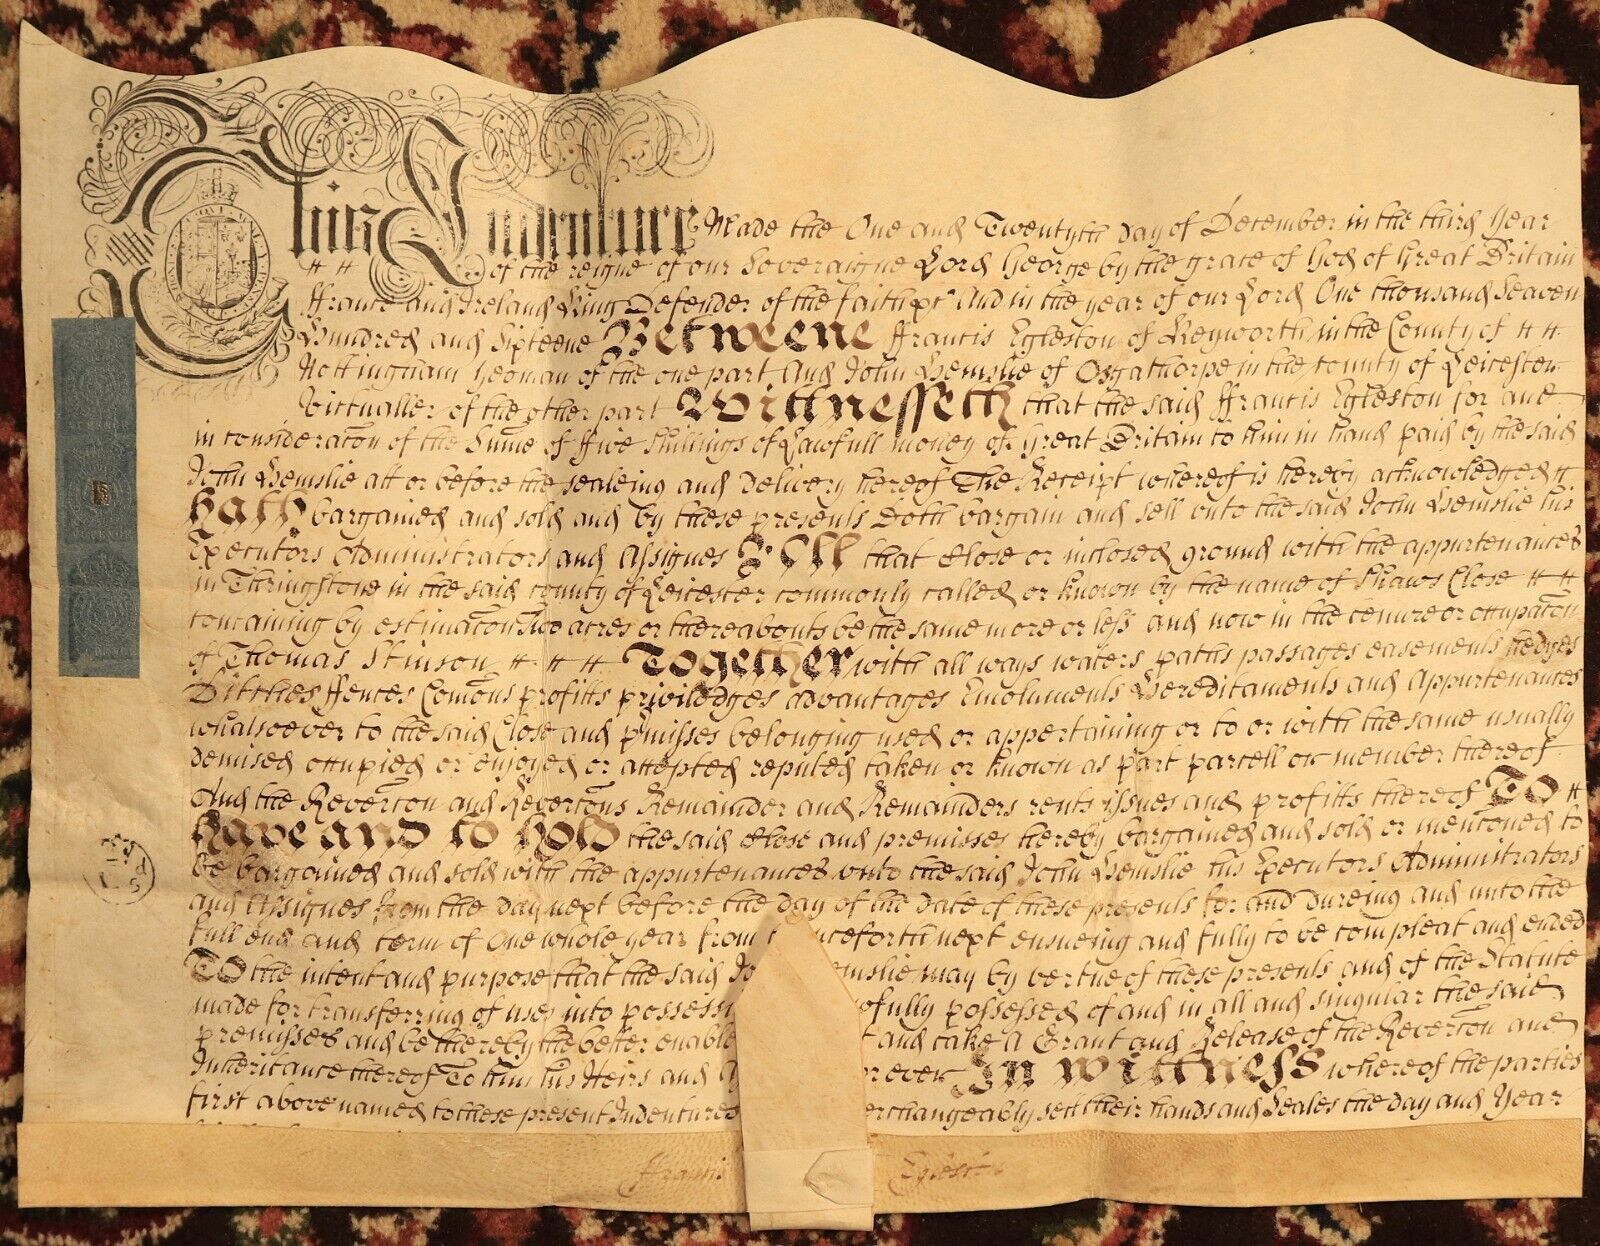 This Indenture Made the One and Twentyth day of December in the third Year
of the reigne of our Soveraigne Lord George by the grace of God of Great Britain
ffrance and Ireland King Defender of the faith &c And in the year of our Lord One thousand Seaven
Hundred and Sixteene Betweene ffrancis Egleston of Keyworth in the County of
Nottingham Yeoman of the one part And John Hemslie of Osgathorpe in the County of Leicester
Victualler of the other part Wittnesseth that the said ffrancis Egleston for and
in consideracon of the Sume of ffive Shillings of Lawfull money of Great Britain to him in hand paid by the said
John Hemslie att or before the sealeing and Delivery hereof The Receipt whereof is hereby acknowledged
Hath bargained and sold and by these presents Doth bargain and sell unto the said John Hemslie his
Executors Administrators and Assignes All that Close or inclosed ground with the appurtenances
in Thringstone in the said County of Leicester commonly called or known by the name of Shaws Close
containing by estimacon Two acres or thereabouts be the same more or less and now in the tenure or occupacon
of Thomas Stinson Together with all ways waters paths passages easements hedges
Ditches ffences Comons profitts priviledges advantages Emoluments Hereditaments and Appurtenances
whatsoever to the said Close and pmisses belonging used or appertaining or to or with the same usually
demised occupied or enjoyed or accepted reputed taken or known as part parcell or member thereof
And the Revercon and Revercons Remainder and Remainders rents issues and profitts thereof To
have and to hold the said Close and premisses hereby bargained and sold or mencioned to
be bargained and sold with the appurtenances unto the said John Hemslie his Executors Administrators
and Assignes from the day next before the day of the date of these presents for and dureing and unto the
full end and term of One whole year from thenceforth next ensueing and fully to be compleat and ended
To the intent and purpose that the said Jo emslie may by vertue of these presents and of the Statute
made for transferring of uses into possessi fully possessed of and in all and singular the said
premisses and be thereby the better enable and take a Grant and Release of the Revercon and
Inheritance thereof To him his Heirs and A rever In wittness whereof the parties
first above named to these present Indentures erchangeably sett their hands and Seales the day and Year
ffrancis Eglest